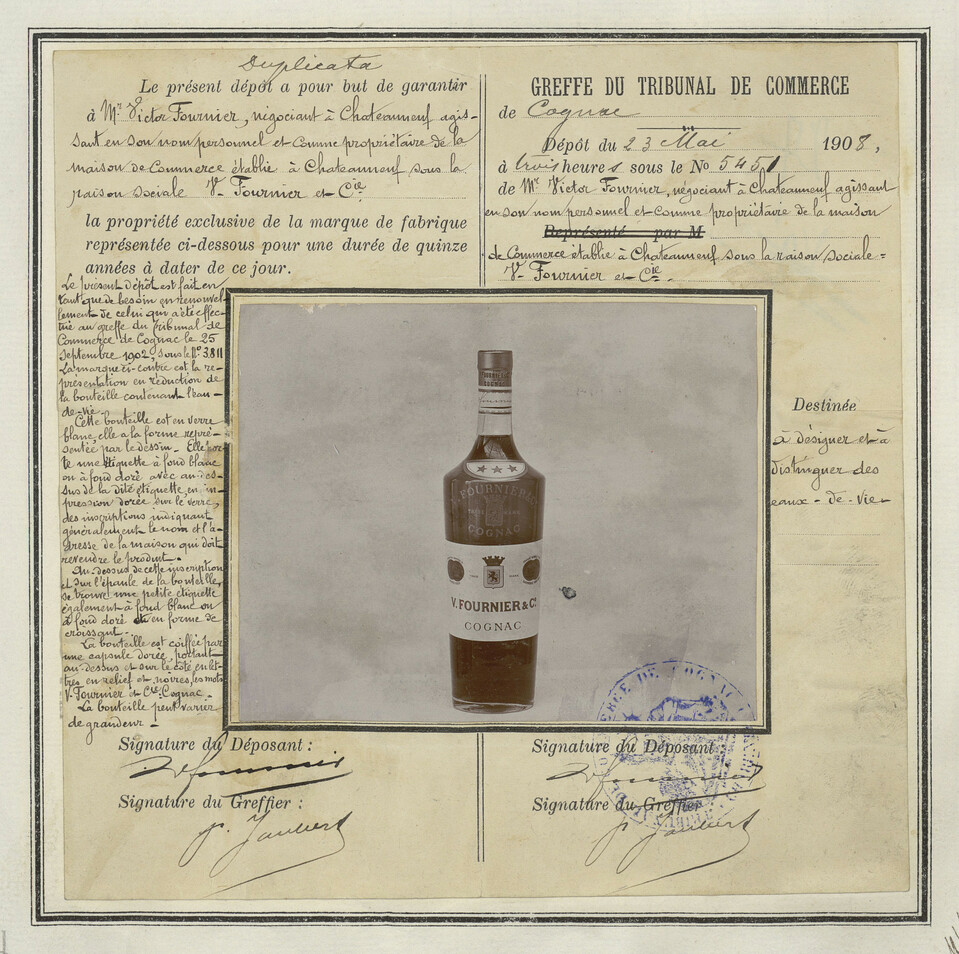 Duplicata
Le présent dépôt a pour but de garantir
à Mr Victor Fournier, négociant à Chateauneuf agis-
sant en son nom personnel et comme propriétaire de la
maison de Commerce établie à Chateauneuf sous la
raison sociale V. Fournier et Cie
la propriété exclusive de la marque de fabrique
représentée ci-dessous pour une durée de quinze
années à dater de ce jour.
Le présent dépôt est fait en
tant que de besoin en renouvel-
lement de celui qui a été effec-
tué au greffe du Tribunal de
Commerce de Cognac le 25
Septembre 1902, sous le No 3.811
La marque ci-contre est la re-
présentation en réduction de
la bouteille contenant l'eau-
de-vie.
Cette bouteille est en verre
blanc, elle a la forme repré-
sentée par le dessin. Elle por-
te une étiquette à fond blanc
ou à fond doré avec au-des-
sus de la dite étiquette, en im-
pression dorée sur le verre,
des inscriptions indiquant
généralement le nom et l'a-
dresse de la maison qui doit
revendre le produit.
Au dessus de cette inscription
et sur l'épaule de la bouteille,
se trouve une petite étiquette
également à fond blanc ou
à fond doré en forme de
croissant.
La bouteille est coiffée par
une capsule dorée, portant
au-dessus et sur le côté en let-
tres en relief et noires, les mots
V. Fournier et Cie Cognac.
La bouteille peut varier
de grandeur.
Signature du Déposant :
V Fournier
Signature du Greffier :
P. Jaubert
GREFFE DU TRIBUNAL DE COMMERCE
de Cognac
Dépôt du 23 Mai 1908,
à trois heures sous le No 5451
de Mr Victor Fournier, négociant à Chateauneuf agissant
en son nom personnel et comme propriétaire de la maison
Représenté par M
de Commerce établie à Chateauneuf sous la raison sociale =
V. Fournier et Cie
Destinée
à désigner et à
distinguer des
eaux-de-vie
V. FOURNIER & Co
COGNAC
V. FOURNIER & Co
COGNAC
V. FOURNIER & Co
COGNAC
Signature du Déposant :
V Fournier
Signature du Greffier
P. Jaubert
DE COGNAC